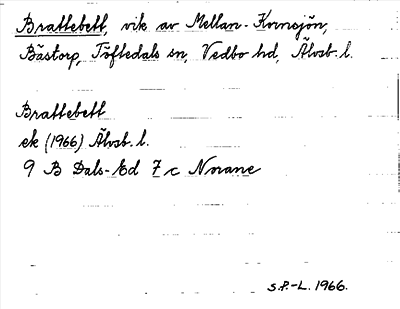 Brattebett, vik av Mellan-Kornsjön,
Båstorp, Töftedals sn, Vedbo hd, Älvsb. l.
Brattebett
ek (1966) Älvsb. l.
9 B Dals-Ed 7 c Norane
S.P.-L. 1966.